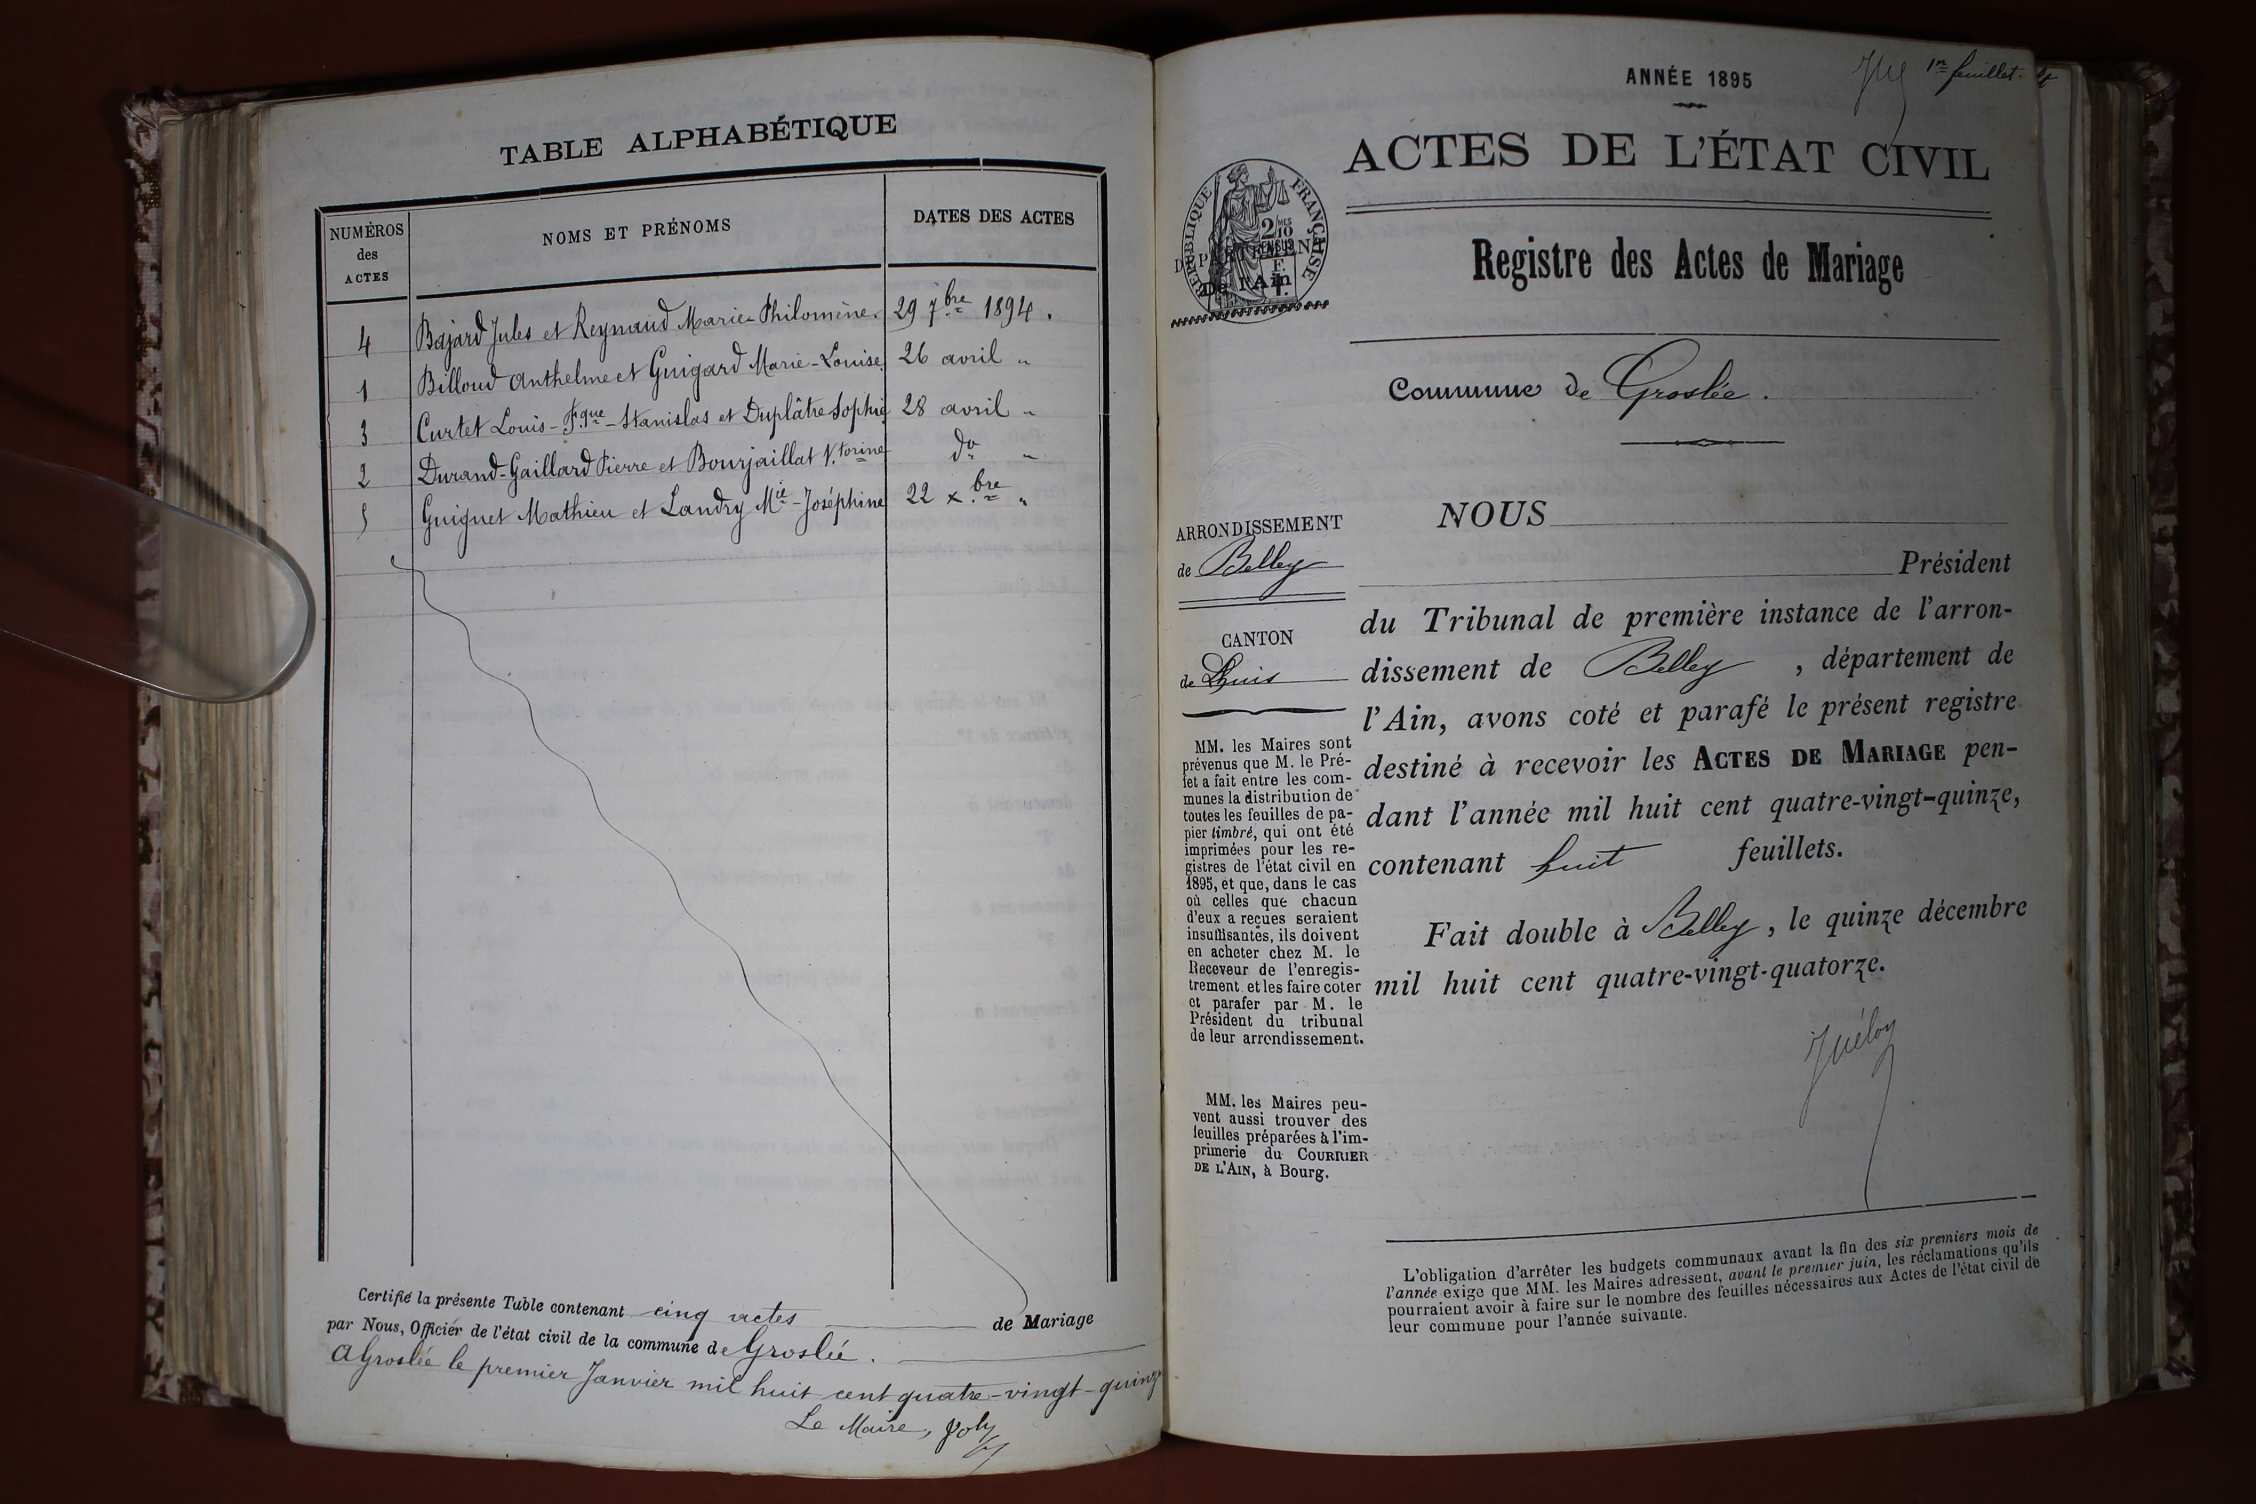 TABLE ALPHABÉTIQUE
NUMÉROS
des
ACTES
NOMS ET PRÉNOMS
DATES DES ACTES
4 Bajard Jules et Reynaud Marie-Philomène. 29 7.bre 1894.
1 Billoud Anthelme et Guigard Marie-Louise 26 avril "
3 Curtet Louis-F.que-Stanislas et Duplâtre Sophie 28 avril "
2 Durand-Gaillard Pierre et Bourjaillat V.torine do "
5 Guignet Mathieu et Landry Mie-Joséphine 22 x.bre "
Certifié la présente Table contenant cinq actes de Mariage
par Nous, Officier de l'état civil de la commune de Groslée.
A Groslée le premier Janvier mil huit cent quatre-vingt-quinze
Le Maire, Joly
1er feuillet.
ANNÉE 1895
ACTES DE L'ÉTAT CIVIL
RÉPUBLIQUE FRANÇAISE
2/10
EN SUS
DÉPARTEMENT
De l'Ain
Registre des Actes de Mariage
Commune de Groslée.
ARRONDISSEMENT
de Belley
CANTON
de Lhuis
MM. les Maires sont
prévenus que M. le Pré-
fet a fait entre les com-
munes la distribution de
toutes les feuilles de pa-
pier timbré, qui ont été
imprimées pour les re-
gistres de l'état civil en
1895, et que, dans le cas
où celles que chacun
d'eux a reçues seraient
insuffisantes, ils doivent
en acheter chez M. le
Receveur de l'enregis-
trement et les faire coter
et parafer par M. le
Président du tribunal
de leur arrondissement.
MM. les Maires peu-
vent aussi trouver des
feuilles préparées à l'im-
primerie du COURRIER
DE L'AIN, à Bourg.
NOUS
Président
du Tribunal de première instance de l'arron-
dissement de Belley, département de
l'Ain, avons coté et parafé le présent registre
destiné à recevoir les ACTES DE MARIAGE pen-
dant l'année mil huit cent quatre-vingt-quinze,
contenant huit feuillets.
Fait double à Belley, le quinze décembre
mil huit cent quatre-vingt-quatorze.
L'obligation d'arrêter les budgets communaux avant la fin des six premiers mois de
l'année exige que MM. les Maires adressent, avant le premier juin, les réclamations qu'ils
pourraient avoir à faire sur le nombre des feuilles nécessaires aux Actes de l'état civil de
leur commune pour l'année suivante.